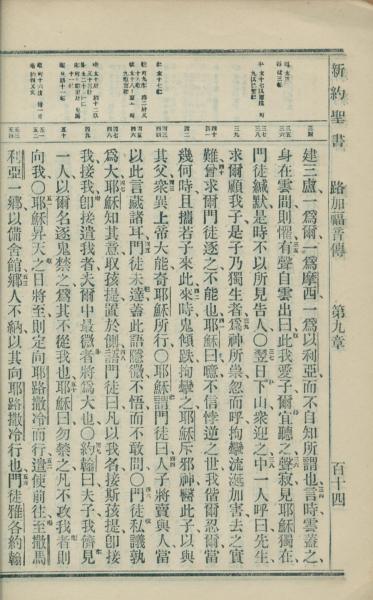 新約聖書 路加福音傳 第九章 百十四
建三廬一爲爾一爲摩西一爲以利亞而不自知所謂也言時雲蓋之
身在雲間則懼有聲自雲出曰此我愛子爾宜聽之聲寂見耶穌獨在
門徒緘默是時不以所見告人〇翌日下山衆迎之中一人呼曰先生
求爾顧我子是子乃獨生者爲神所祟忽而呼拘攣流涎加害去之實
難曾求爾門徒逐之不能也耶穌曰噫不信悖逆之世我偕爾忍爾當
幾何時且攜若子來此來時鬼傾跌拘攣之耶穌斥邪神醫此子以與
其父衆異上帝大能奇耶穌所行〇耶穌謂門徒曰人子將賣與人當
以此言藏諸耳門徒未達蓋此語隱微不悟而不敢問〇門徒私議孰
爲大耶穌知其意取孩提置於側語門徒曰凡以我名接斯孩提卽接
我接我卽接遣我者夫爾中最微者將爲大也〇約翰曰夫子我儕見
一人以爾名逐鬼禁之爲其不從我也耶穌曰勿禁之凡不敵我者則
向我〇耶穌昇天之日將至則定向耶路撒冷而行遣使前往至撒馬
利亞一鄉以備舍館鄉人不納以其向耶路撒冷行也門徒雅各約翰